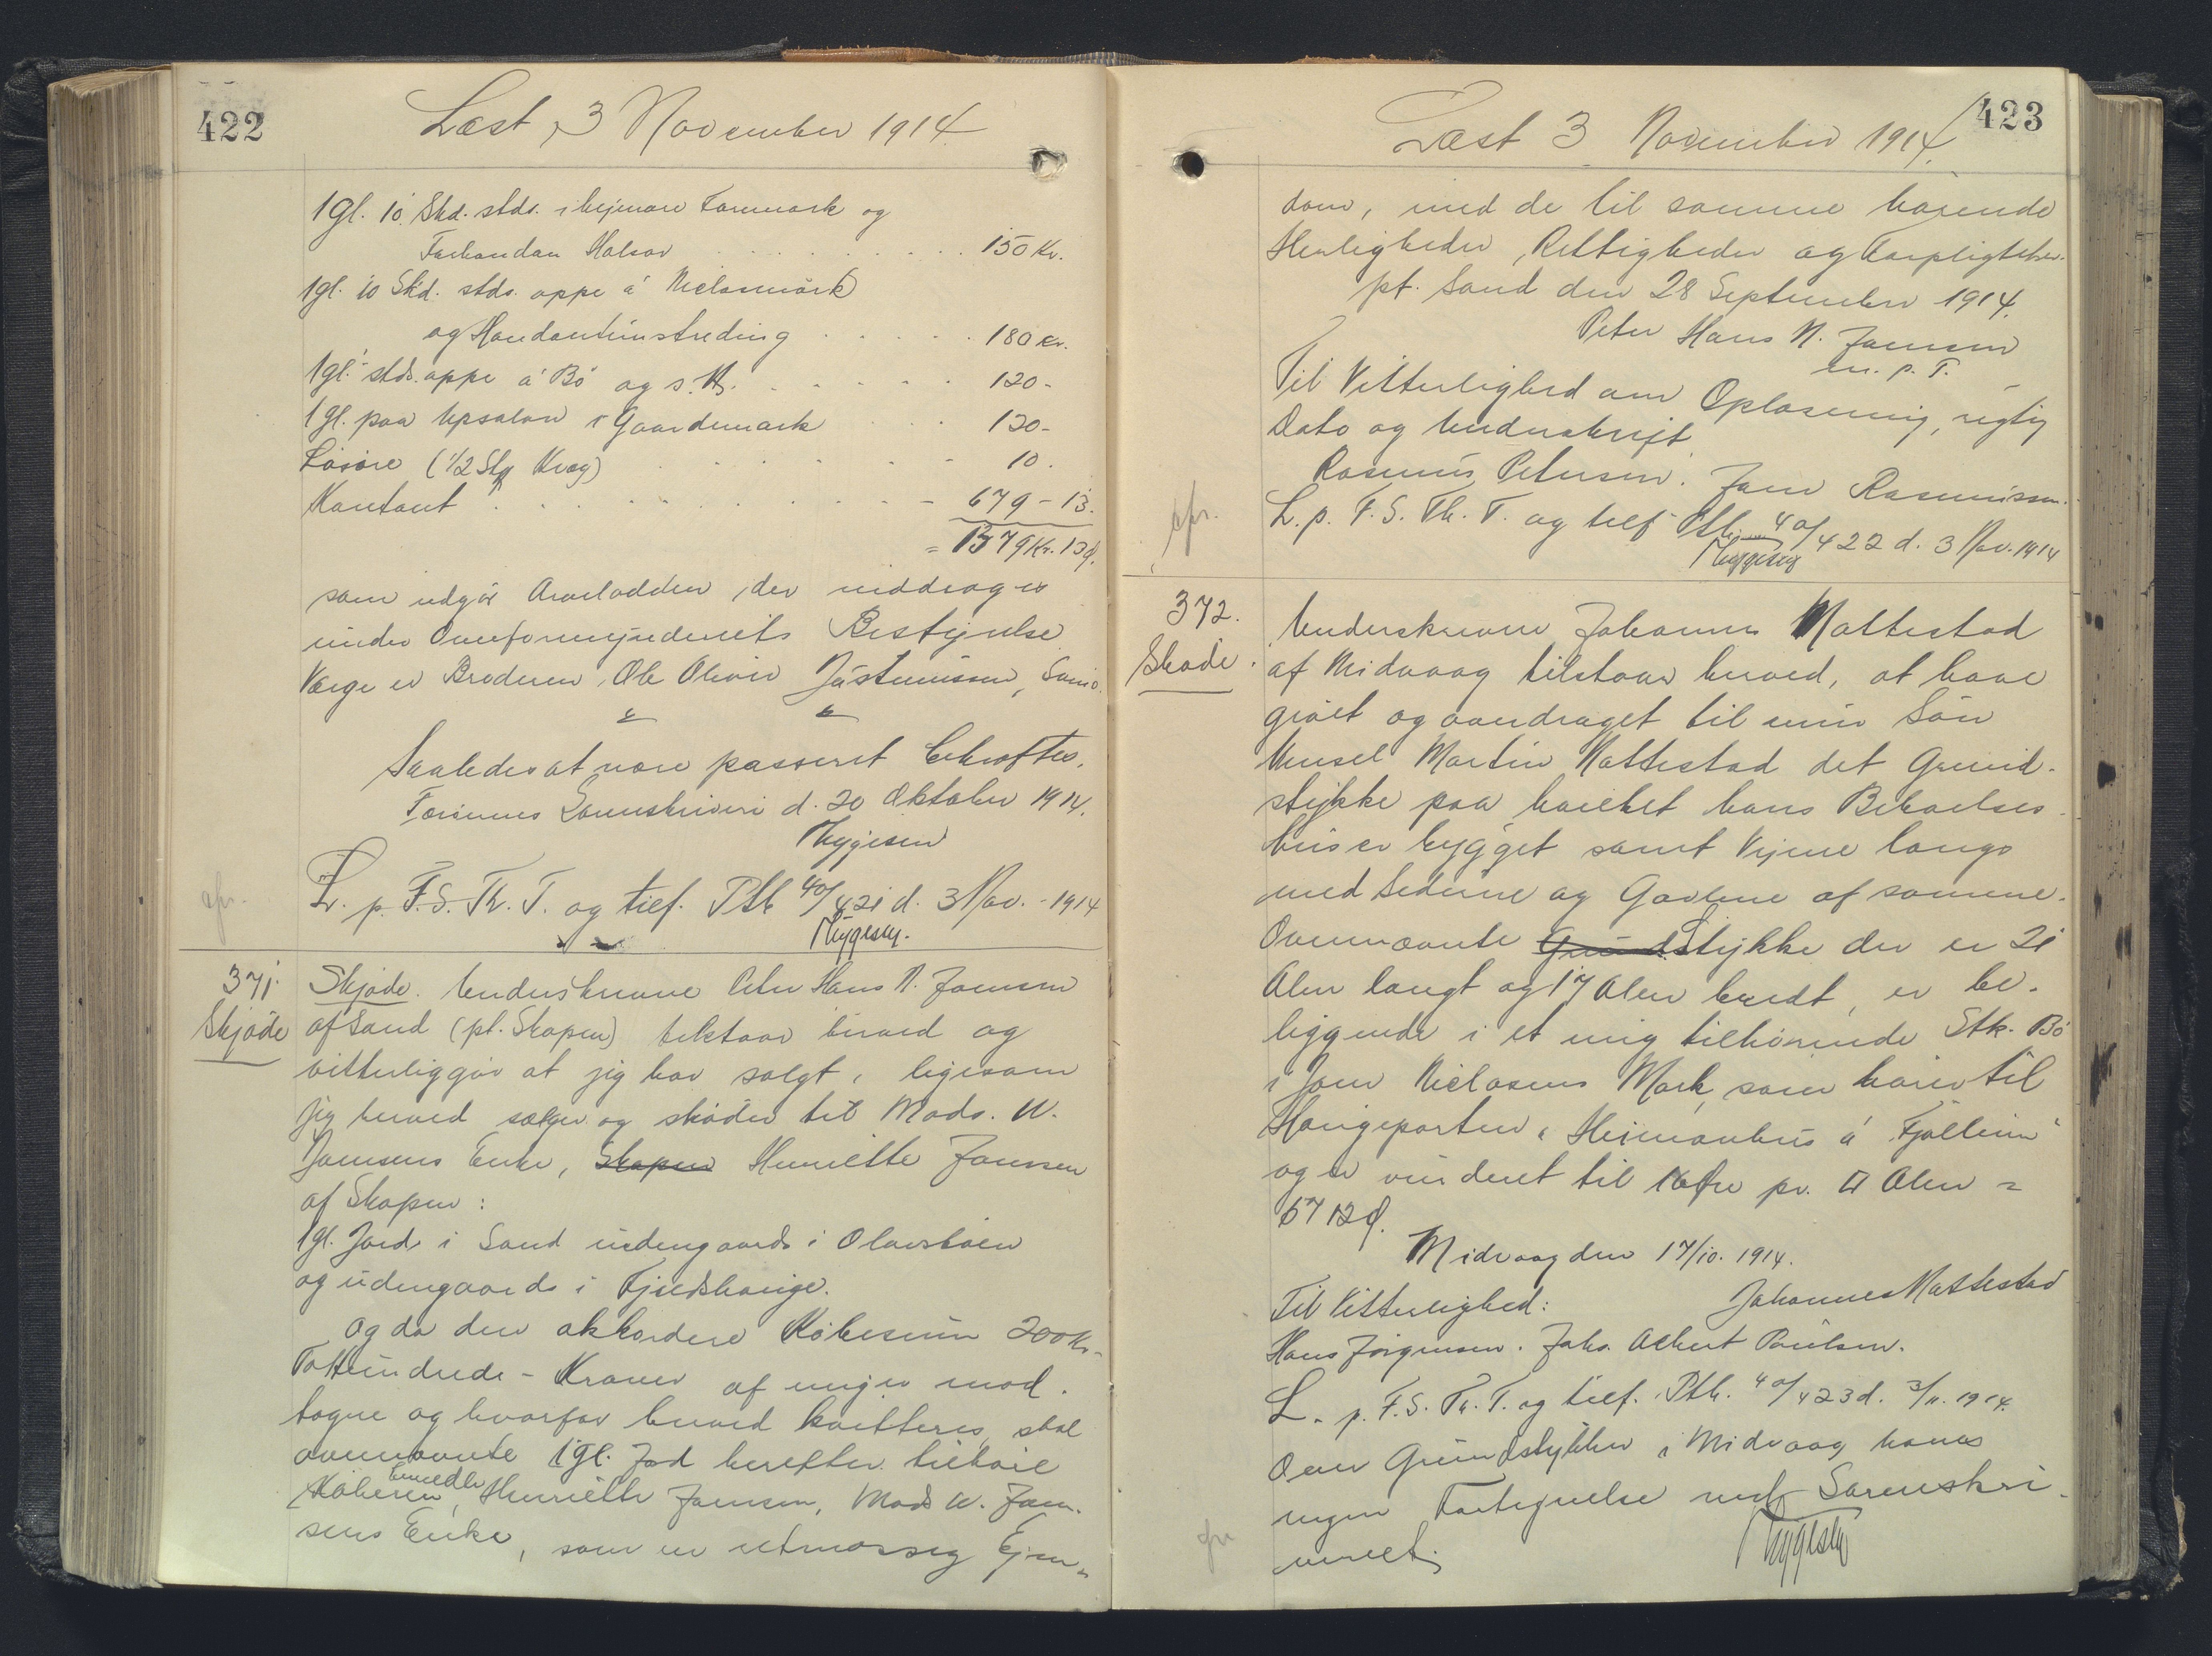 422
Læst 3 November 1914
1 gl. 10 Skd. stds. i hejmare Tormork og
Forhandan Halsar . . . . . . . . 150 Kr.
1 gl. 10 Skd. stds. oppe á Nielsamörk
og Handantimstreding . . . . . 180 Kr.
1 gl. stds. oppe á Bö og s. v. . . . . . . 120 -
1 gl. paa Upsalon i Gaardemark . . . 120 -
Lösöre (1/2 Stk Kvæg) . . . . . . 10.
Kontant . . . . . . . . . . 679 - 13.
= 1379 Kr. 13 Ø.
som udgör Arvelodden, der inddrages
under Overformynderiets Bestyrelse
Værge er Broderen, Ole Oliver Justinussen,
Saaledes at være passeret bekræftes.
Færøernes Sorenskriveri d. 20 Oktober 1914.
Thygesen
L. p. F. S. Th. T. og tilf. Ptb 40/421 d. 3 Nov. - 1914
Thygesen.
afr.
371.
Skjöde
Skjöde. Underskrevne Peter Hans N. Joensen
af Sand (pt. Skopen) tilstaar herved og
vitterliggör at jeg har solgt, ligesom
jeg herved sælger og sköder til Mads. W.
Joensens Enke, Skopen Henriette Joensen
af Skopen:
1 gl. Jord i Sand indengaards i Olavsböen
og udengaards i Fjædshauge.
Og da den akkordere Köbesum 200 Kr -
Tohundrede - Kroner af mig er mod-
tagne og hvorfor herved kvitteres, skal
ovennævnte 1 gl. Jord herefter tilhöre
bemeldte
Köberen, Henriette Joensen, Mads W. Joen-
sens Enke, som en retmæssig Ejen-
423
Læst 3 November 1914.
dom, med de til samme hörende
Herligheder, Rettigheder og Forpligtelser.
pt. Sand den 28 September 1914.
Peter Hans N. Joensen
m. p. P.
Til Vitterlighed om Oplæsning, rigtig
Dato og Underskrift
Rasmus Petersen. Joen Rasmussen.
L. p. F. S. Th. T. og tilf Ptb. 40/422 d. 3 Nov. 1914
Thygesen
afr.
372.
Sköde.
Underskrevne Johannes Nattestad
af Midvaag tilstaar herved, at have
givet og overdraget til min Sön
Unsel Martin Nattestad det Grund-
stykke paa hvilket hans Beboelses-
hus er bygget samt Vejene langs
med Siderne og Gavlene af samme.
Ovennævnte Grund Stykke der er 21
Alen langt og 17 Alen bredt, er be-
liggende i et mig tilhörende Stk. Bö
i Joen Nielasens Mark, som hörer til
Haugeparten "Heimanhus á Fjøllum"
og er vurderet til 16 Öre pr. □ Alen =
57 12 Ø.
Midvaag den 17/10. 1914.
Johannes Nattestad
Til Vitterlighed:
Hans Jörgensen. Johs. Albert Poulsen.
L. p. F. S. Th. T. og tilf. Ptb. 40/423 d. 3/11. 1914.
Over Grundstykker i Midvaag haves
ingen Fortegnelse ved Sorenskri-
veriet.
Thygesen
afr